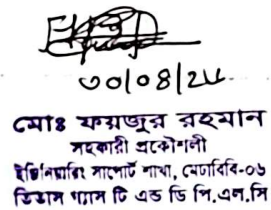 ৩০/০৪/২৫
মোঃ ফয়জুর রহমান
সহকারী প্রকৌশলী
ইঞ্জিনিয়ারিং সাপোর্ট শাখা, মেটাবিবি-০৬
তিতাস গ্যাস টি এন্ড ডি পি.এল.সি